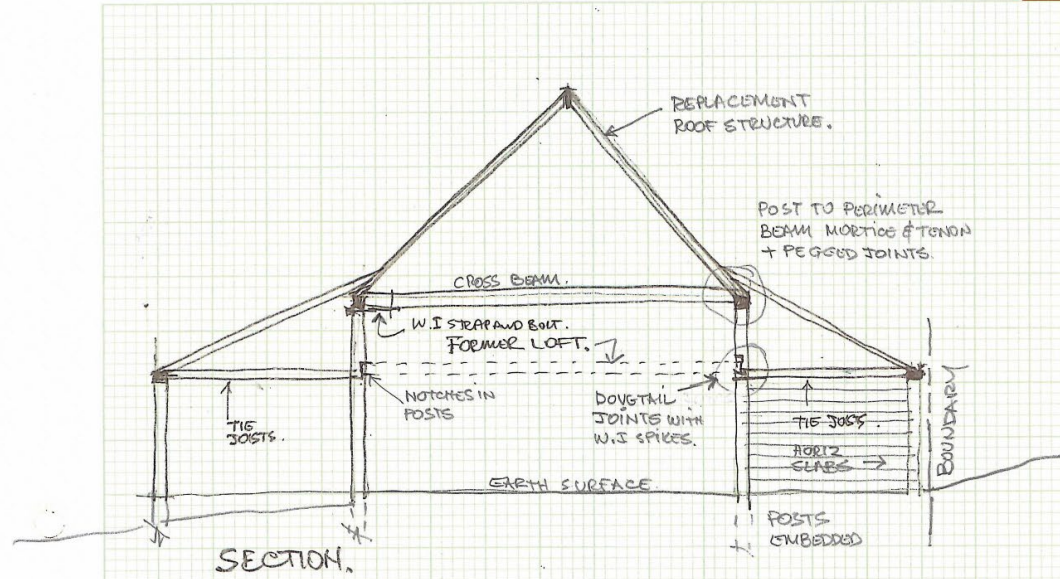 REPLACEMENT
ROOF STRUCTURE.
POST TO PERIMETER
BEAM MORTICE & TENON
+ PEGGED JOINTS.
CROSS BEAM.
W.I STRAP AND BOLT.
FORMER LOFT.
NOTCHES IN
POSTS
DOVETAIL
JOINTS WITH
W.I SPIKES.
TIE
JOISTS.
TIE JOSTS.
HORIZ
SLABS
BOUNDARY
EARTH SURFACE
POSTS
EMBEDDED
SECTION.